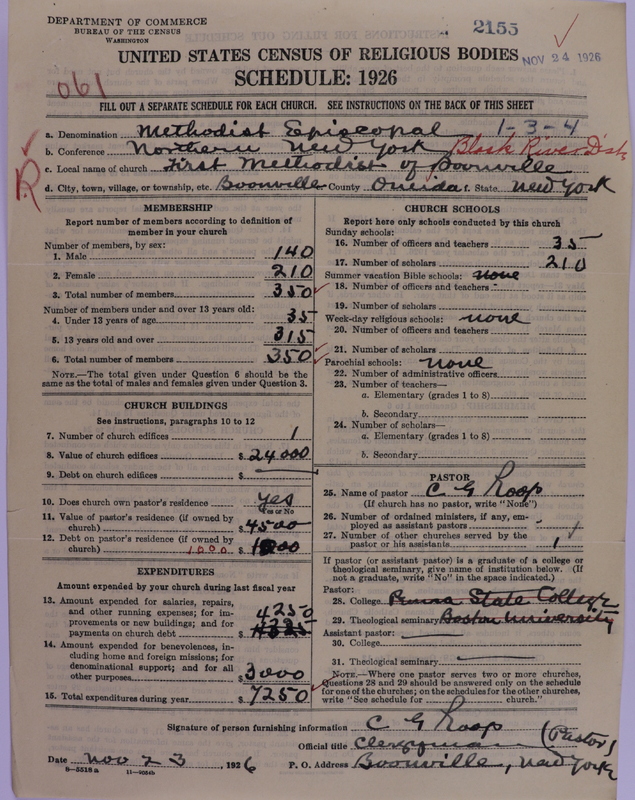 DEPARTMENT OF COMMERCE
BUREAU OF THE CENSUS
WASHINGTON
2155
NOV 24 1926
UNITED STATES CENSUS OF RELIGIOUS BODIES
SCHEDULE: 1926
061
FILL OUT A SEPARATE SCHEDULE FOR EACH CHURCH. SEE INSTRUCTIONS ON THE BACK OF THIS SHEET
a. Denomination Methodist Episcopal 1-3-4
b. Conference Northern New York Black River Dist.
c. Local name of church First Methodist of Boonville
d. City, town, village, or township, etc. Boonville County Oneida f. State New York
R
MEMBERSHIP
Report number of members according to definition of
member in your church
Number of members, by sex:
1. Male 140
2. Female 210
3. Total number of members 350
Number of members under and over 13 years old:
4. Under 13 years of age 35
5. 13 years old and over 315
6. Total number of members 350
NOTE.—The total given under Question 6 should be
the same as the total of males and females given under Question 3.
CHURCH BUILDINGS
See instructions, paragraphs 10 to 12
7. Number of church edifices 1
8. Value of church edifices $24000
9. Debt on church edifices $
10. Does church own pastor's residence yes
Yes or No
11. Value of pastor's residence (if owned by
church) $4500
12. Debt on pastor's residence (if owned by
church) 1000 $1000
EXPENDITURES
Amount expended by your church during last fiscal year
13. Amount expended for salaries, repairs,
and other running expenses; for im-
provements or new buildings; and for
payments on church debt 4250 $4325
14. Amount expended for benevolences, in-
cluding home and foreign missions; for
denominational support; and for all
other purposes $3000
15. Total expenditures during year $7250
CHURCH SCHOOLS
Report here only schools conducted by this church
Sunday schools:
16. Number of officers and teachers 35
17. Number of scholars 210
Summer vacation Bible schools: none
18. Number of officers and teachers
19. Number of scholars
Week-day religious schools: none
20. Number of officers and teachers
21. Number of scholars
Parochial schools: none
22. Number of administrative officers
23. Number of teachers—
a. Elementary (grades 1 to 8)
b. Secondary
24. Number of scholars—
a. Elementary (grades 1 to 8)
b. Secondary
PASTOR
25. Name of pastor C G Roop
(If church has no pastor, write "None")
26. Number of ordained ministers, if any, em-
ployed as assistant pastors
27. Number of other churches served by the
pastor or his assistants 1
If pastor (or assistant pastor) is a graduate of a college or
theological seminary, give name of institution below. (If
not a graduate, write "No" in the space indicated.)
Pastor:
28. College Penna State College
29. Theological seminary Boston University
Assistant pastor:
30. College
31. Theological seminary
NOTE.—Where one pastor serves two or more churches,
Questions 28 and 29 should be answered only on the schedule
for one of the churches; on the schedules for the other churches,
write "See schedule for church."
Signature of person furnishing information C G Roop
Official title Clergyman (Pastor)
Date Nov 23, 1926 P. O. Address Boonville, New York
8—5518a 11—9054b